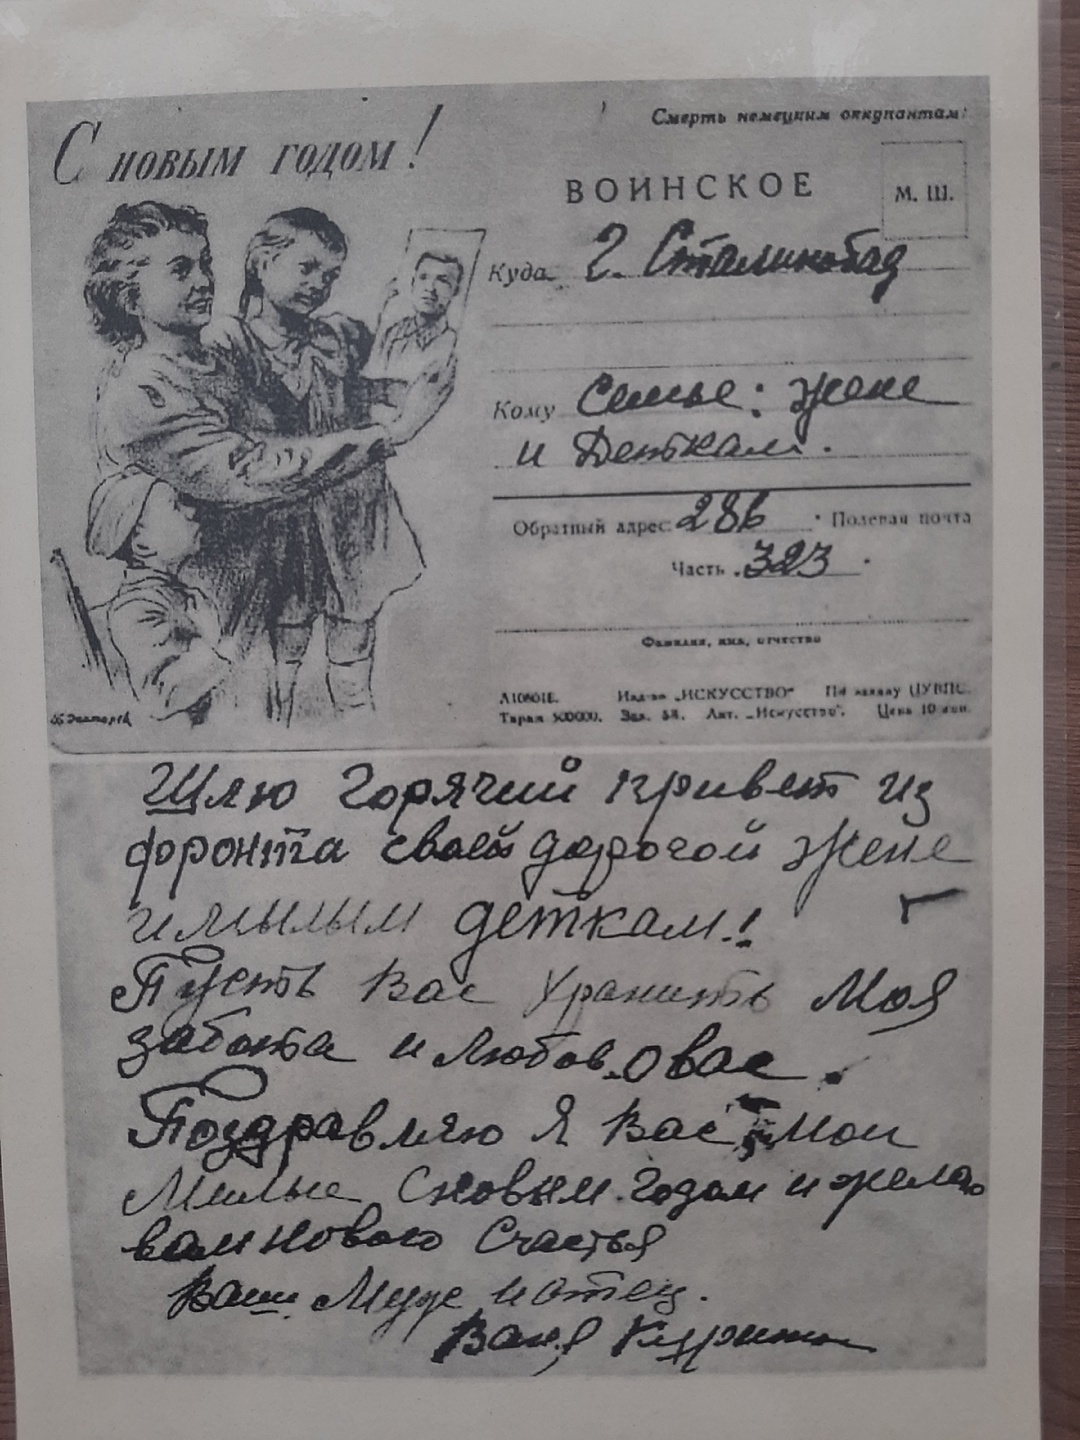 С новым годом!
Смерть немецким оккупантам!
ВОИНСКОЕ
М. Ш.
Куда г. Сталинабад
Кому Семье: жене
и Деткам.
Обратный адрес: 286 Полевая почта
Часть 323
Фамилия, имя, отчество
Изд-во „ИСКУССТВО“ По заказу ЦУВПС.
Тираж 500000. Зак. 58. Лит. „Искусство“. Цена 10 коп.
Шлю Горячий привет из
фронта своей дорогой жене
и милым деткам!
Пусть Вас Хранить Моя
забота и любов. о вас.
Поздравляю я Вас Мои
Милые С новым годом и желаю
вам нового Счастья
Ваш Муж и отец.
Ваня